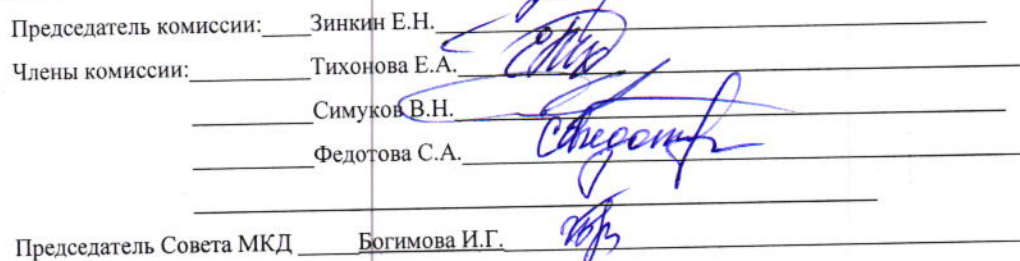 Председатель комиссии:____Зинкин Е.Н.
Члены комиссии:__________Тихонова Е.А.
__________Симуков В.Н.
__________Федотова С.А.
Председатель Совета МКД _____Богимова И.Г.